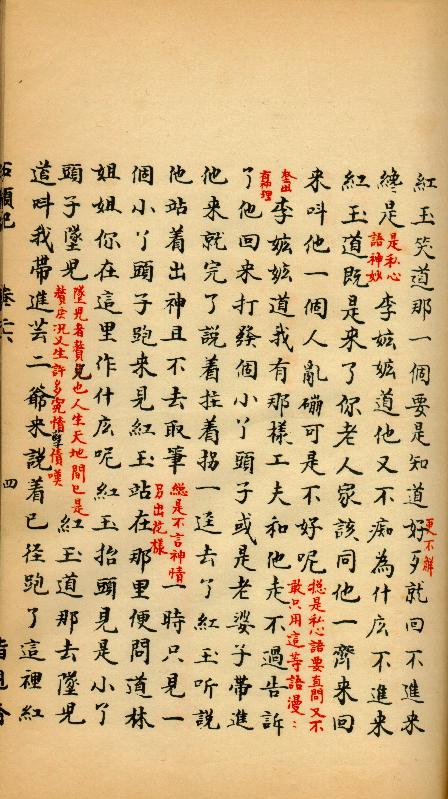 紅玉笑道那一個要是知道好歹就回不進來
更不解
纔是
是私心語神妙
李嫲嫲道他又不痴為什庅不進來
紅玉道既是來了你老人家該同他一齊來回
來呌他一個人亂磞可是不好呢
總是私心語要直問又不敢只用這等語漫漫
李嫲嫲道我有那樣工夫和他走不過告訴
了他回來打發個小丫頭子或是老婆子帶進
他來就完了說着拄着拐一逕去了紅玉听說
他站着出神且不去取筆
總是不言神情另出花樣
一時只見一
個小丫頭子跑來見紅玉站在那里便問道林
姐姐你在這里作什庅呢紅玉抬頭見是小丫
頭子墜兒
墜兒者贅兒也人生天地間已是贅疣况又生許多寃情孽債嘆
紅玉道那去墜兒
道呌我帶進芸二爺來說着已徑跑了這裡紅
四